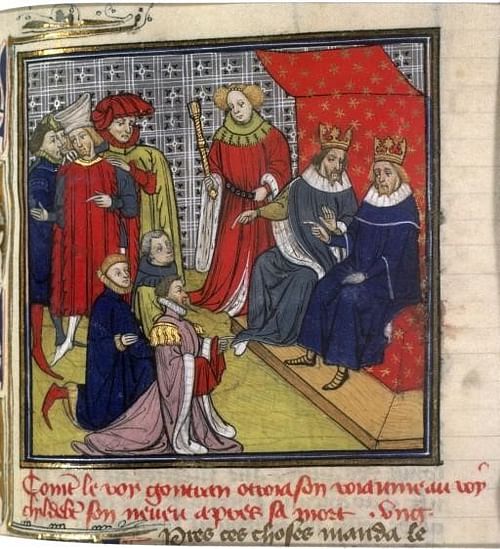 Com̃t le roy gontran ottroia son roiaume au roy
childebt̃ son neueu apres sa mort · vng̃·
Pres ces choses manda le